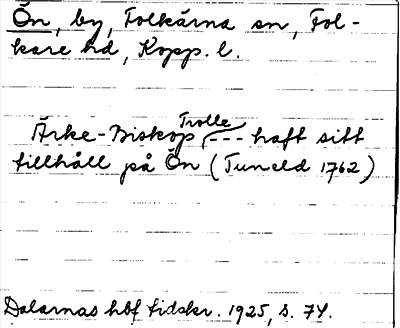 Ön, by, Folkärna sn, Fol-
kare hd, Kopp. l.
Ärke-Biskop Trolle --- haft sitt
tillhåll på Ön (Tuneld 1762)
Dalarnas hbf tidskr. 1925, s. 74.